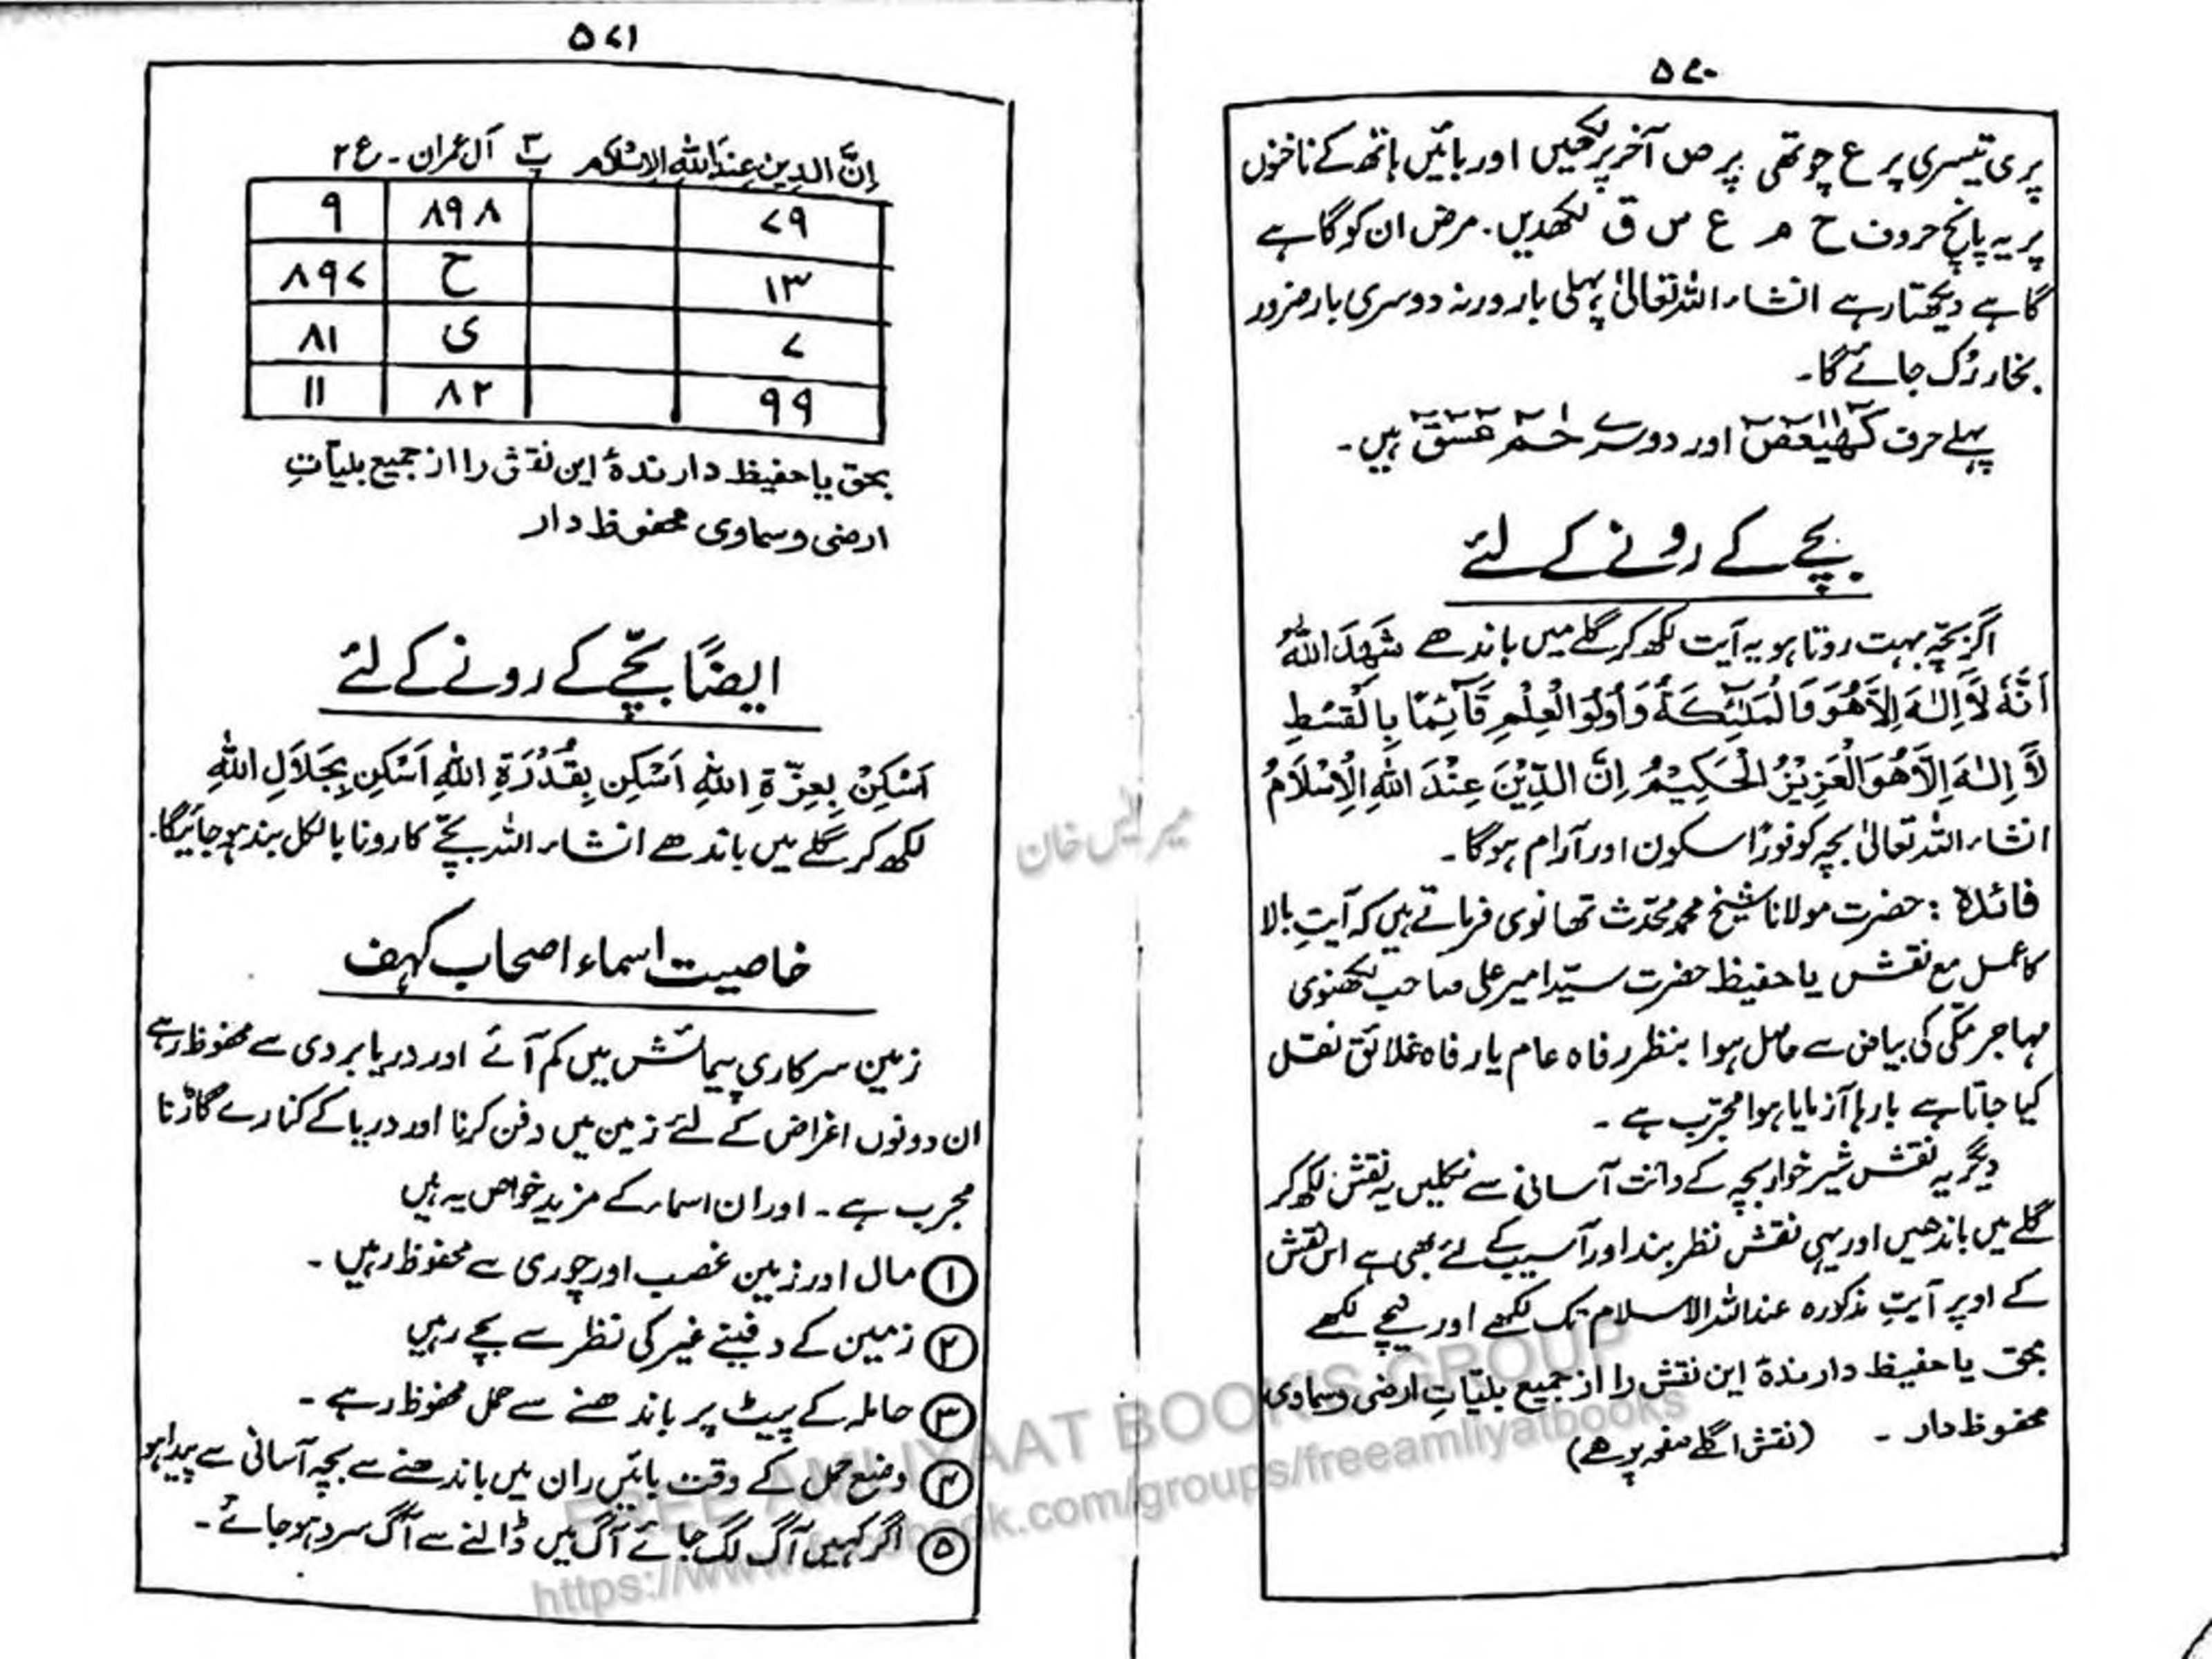 ۵۷۰
پر ی تیسری پر ع چوتھی پر ص آخر پر لکھیں اور بائیں ہاتھ کے ناخنوں
پر یہ پانچ حروف ح م ع س ق لکھدیں۔ مرض ان کو گاہے
گاہے دیکھتا رہے انشاء اللہ تعالیٰ پہلی بار ورنہ دوسری بار ضرور
بخار رک جائے گا۔
پہلے حرف کٓھٰیٰعٓصٓ اور دوسرے حٰمٓ عٓسٓقٓ ہیں۔
بچے کے رونے کے لئے
اگر بچّہ بہت روتا ہو یہ آیت لکھ کر گلے میں باندھے شَهِدَ اللّٰهُ
اَنَّهٗ لَآ اِلٰهَ اِلَّا هُوَ وَالْمَلٰٓئِكَةُ وَاُولُوا الْعِلْمِ قَآئِمًا بِالْقِسْطِ
لَآ اِلٰهَ اِلَّا هُوَ الْعَزِيْزُ الْحَكِيْمُ اِنَّ الدِّيْنَ عِنْدَ اللّٰهِ الْاِسْلَامُ
انشاء اللہ تعالیٰ بچہ کو فوراً سکون اور آرام ہوگا۔
فائدہ : حضرت مولانا شیخ محمد محدّث تھانوی فرماتے ہیں کہ آیتِ بالا
کا عمل مع نقش یا حفیظ حضرت سیّد امیر علی صاحب لکھنوی
مہاجر مکّی کی بیاض سے حاصل ہوا بنظر رفاہ عام یا رفاہ خلائق نقل
کیا جاتا ہے بارہا آزمایا ہوا مجرّب ہے۔
دیگر یہ نقش شیر خوار بچہ کے دانت آسانی سے نکلیں یہ نقش لکھ کر
گلے میں باندھیں اور یہی نقش نظر بند اور آسیب کے لئے بھی ہے اس نقش
کے اوپر آیتِ مذکورہ عند اللہ الاسلام تک لکھے اور نیچے لکھے
بحق یا حفیظ دارندۂ ایں نقش را از جمیع بلیّاتِ ارضی و سماوی
محفوظ دار۔ (نقش اگلے صفحہ پر ھے)
۵۷۱
اِنَّ الدِين عِنْدَ اللهِ الاِسْلَام پ۳ آل عمران۔ ع ۲
۷۹ ۸۹۸ ۹
۱۳ ح ۸۹۷
۷ ی ۸۱
۹۹ ۸۲ ۱۱
بحق یا حفیظ دارندۂ ایں نقش را از جمیع بلیآتِ
ارضی و سماوی محفوظ دار
ایضاً بچّے کے رونے کے لئے
اَسْكِنْ بِعِزّةِ اللهِ اَسْكِن بِقُدْرَةِ اللهِ اَسْكِن بِجَلَالِ اللهِ
لکھ کر گلے میں باندھے انشاء اللہ بچّے کا رونا بالکل بند ہو جائیگا۔
خاصیت اسماء اصحاب کہف
زمین سرکاری پیمائش میں کم آئے اور دریا بردی سے محفوظ رہے
ان دونوں اغراض کے لئے زمین میں دفن کرنا اور دریا کے کنارے گاڑنا
مجرب ہے۔ اور ان اسماء کے مزید خواص یہ ہیں
۱ مال اور زمین غصب اور چوری سے محفوظ رہیں۔
۲ زمین کے دفینے غیر کی نظر سے بچے رہیں
۳ حاملہ کے پیٹ پر باندھنے سے حمل محفوظ رہے۔
۴ وضع حمل کے وقت بائیں ران میں باندھنے سے بچہ آسانی سے پیدا ہو
۵ اگر کہیں آگ لگ جائے آگ میں ڈالنے سے آگ سرد ہو جائے۔
خان
FREE AMLIYAAT BOOKS GROUP
https://www.facebook.com/groups/freeamliyatbooks